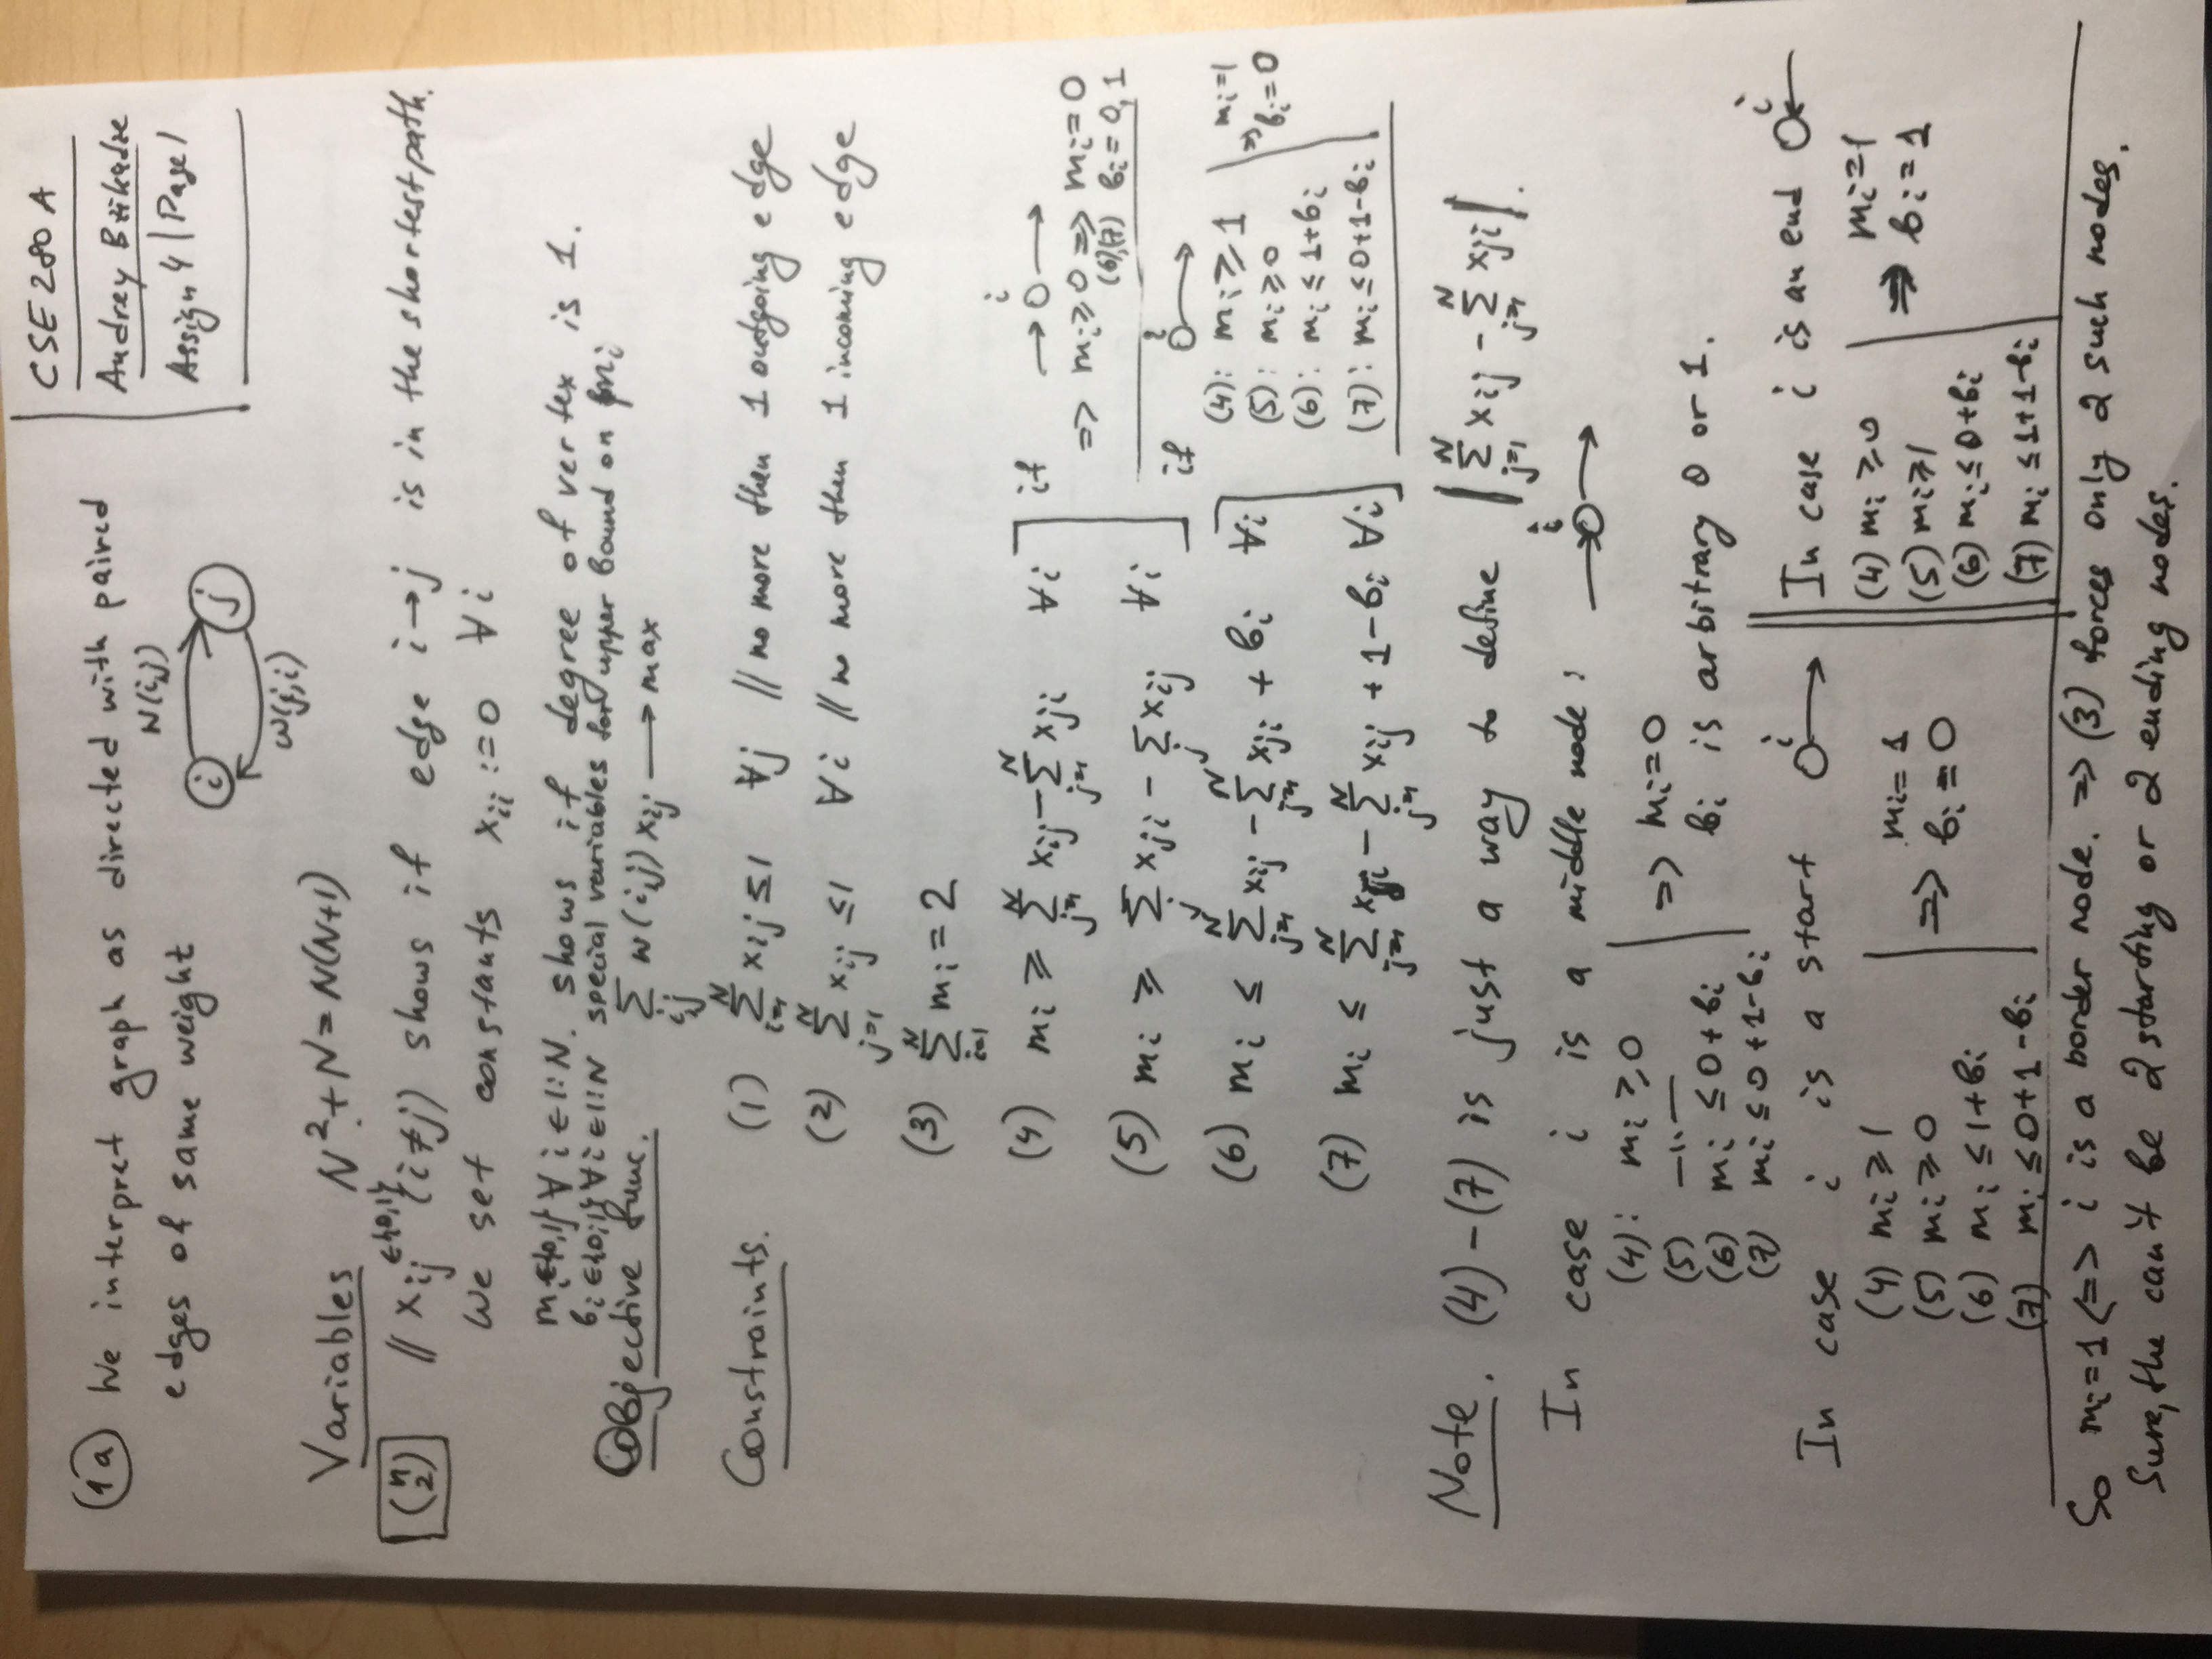 CSE 280 A
Andrey Bzikadze
Assign 4 | Page 1
(1a) We interpret graph as directed with paired
edges of same weight
W(i,j)
i j
w(j,i)
Variables N²+N=N(N+1)
(n 2) // x_ij ∈{0,1} (i≠j) shows if edge i→j is in the shortest path.
We set constants x_ii :=0 ∀i
m_i∈{0,1} ∀ i∈1:N. shows if degree of vertex is 1.
b_i∈{0,1} ∀i∈1:N special variables for upper bound on m_i
Objective func. Σ_{i,j} w(i,j) x_ij ⟶ max
Constraints. (1) Σ_{i=1}^N x_ij ≤ 1 ∀j // no more then 1 outgoing edge
(2) Σ_{j=1}^N x_ij ≤ 1 ∀i // no more then 1 incoming edge
(3) Σ_{i=1}^N m_i = 2
(4) m_i ≥ Σ_{j=1}^N x_ij - Σ_{j=1}^N x_ji ∀i
(5) m_i ≥ Σ_j x_ji - Σ_j x_ij ∀i
(6) m_i ≤ Σ_{j=1}^N x_ij - Σ_{j=1}^N x_ji + b_i ∀i
(7) m_i ≤ Σ_{j=1}^N x_ji - Σ_{j=1}^N x_ij + 1-b_i ∀i
if →O→ i
=> m_i≥0 => m_i=0
(6),(7) b_i=0,1
if O→ i
(4): m_i≥1
(5): m_i≥0
(6): m_i≤1+b_i
(7): m_i≤0+1-b_i
=> m_i=1
b_i=0
Note. (4)-(7) is just a way to define |Σ_{j=1}^N x_ij - Σ_{j=1}^N x_ji|.
In case i is a middle node: →O→ i
(4): m_i≥0
(5) —"—
(6) m_i ≤0+b_i
(7) m_i ≤0+1-b_i
=> m_i=0
b_i is arbitrary 0 or 1.
In case i is a start O→ i
(4) m_i≥1
(5) m_i≥0
(6) m_i≤1+b_i
(7) m_i≤0+1-b_i
=> m_i=1
b_i=0
In case i is an end O← i
(4) m_i≥0
(5) m_i≥1
(6) m_i≤0+b_i
(7) m_i≤1+1-b_i
=> m_i=1
b_i=1
So m_i=1 <=> i is a border node. => (3) forces only 2 such nodes.
Sure, the can't be 2 starting or 2 ending nodes.